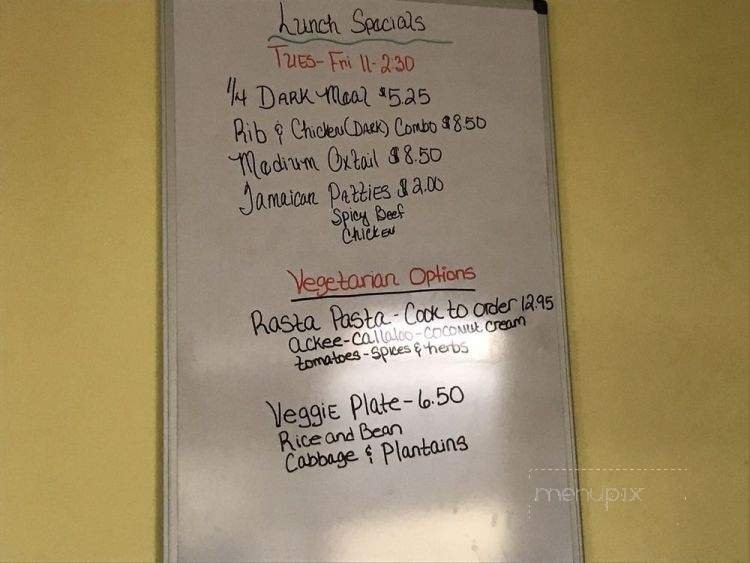 Lunch Specials
TUES-Fri 11-2:30
1/4 DARK Meal $5.25
Rib & Chicken (DARK) Combo $8.50
Medium Oxtail $8.50
Jamaican Patties $2.00
Spicy Beef
Chicken
Vegetarian Options
Rasta Pasta-Cook to order 12.95
ackee-callaloo-coconut cream
tomatoes-spices & herbs
VeggiE Plate-6.50
Rice and Bean
Cabbage & Plantains
menupix